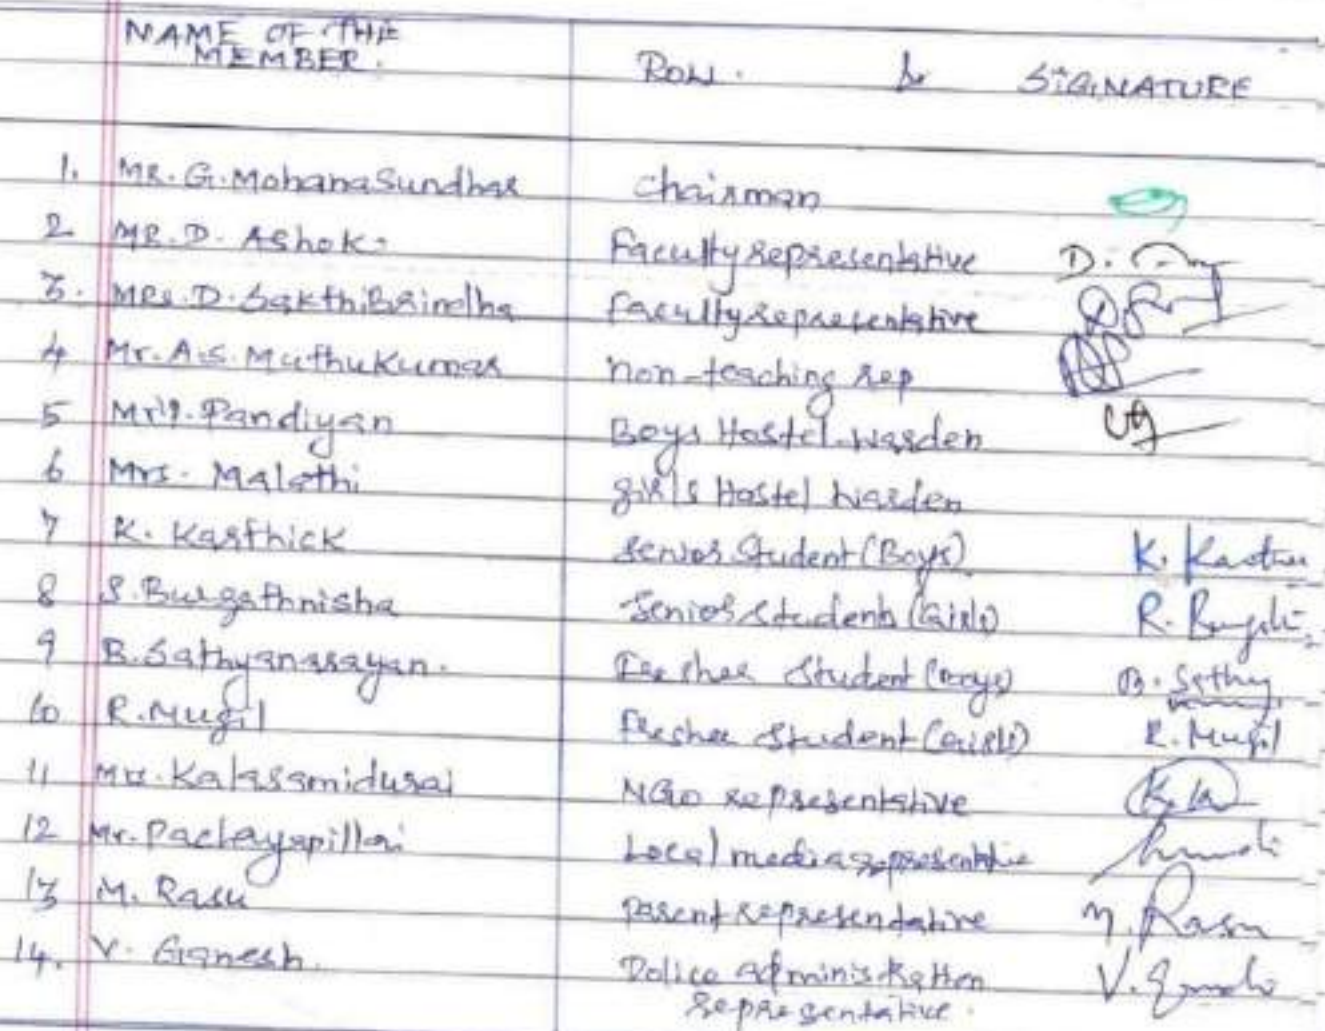 NAME OF THE
MEMBER.
ROLL. & SIGNATURE
1. MR. G. MohanaSundhar chairman
2 MR. D. Ashok. Faculty representative
3. MRs. D. SakthiBrindha Faculty representative
4 Mr. A.S. MuthuKumar non-teaching rep
5 Mr. Pandiyan Boys Hostel-warden
6 Mrs. Malathi girls Hostel warden
7 K. Karthick senior Student (Boys) K.
8 S. Burgathnisha Senior Students (Girls) R.
9 B. Sathyanarayan. Fresher Student (Boys) B. Sathy
10 R. Mugil fresher student (Girls) R. Mugil
11 Mr. Kalasamidurai NGO representative
12 Mr. Pachayapillai Local media representative
13 M. Rasu parent representative M. Rasu
14. V. Ganesh. Police administration V.
representative.